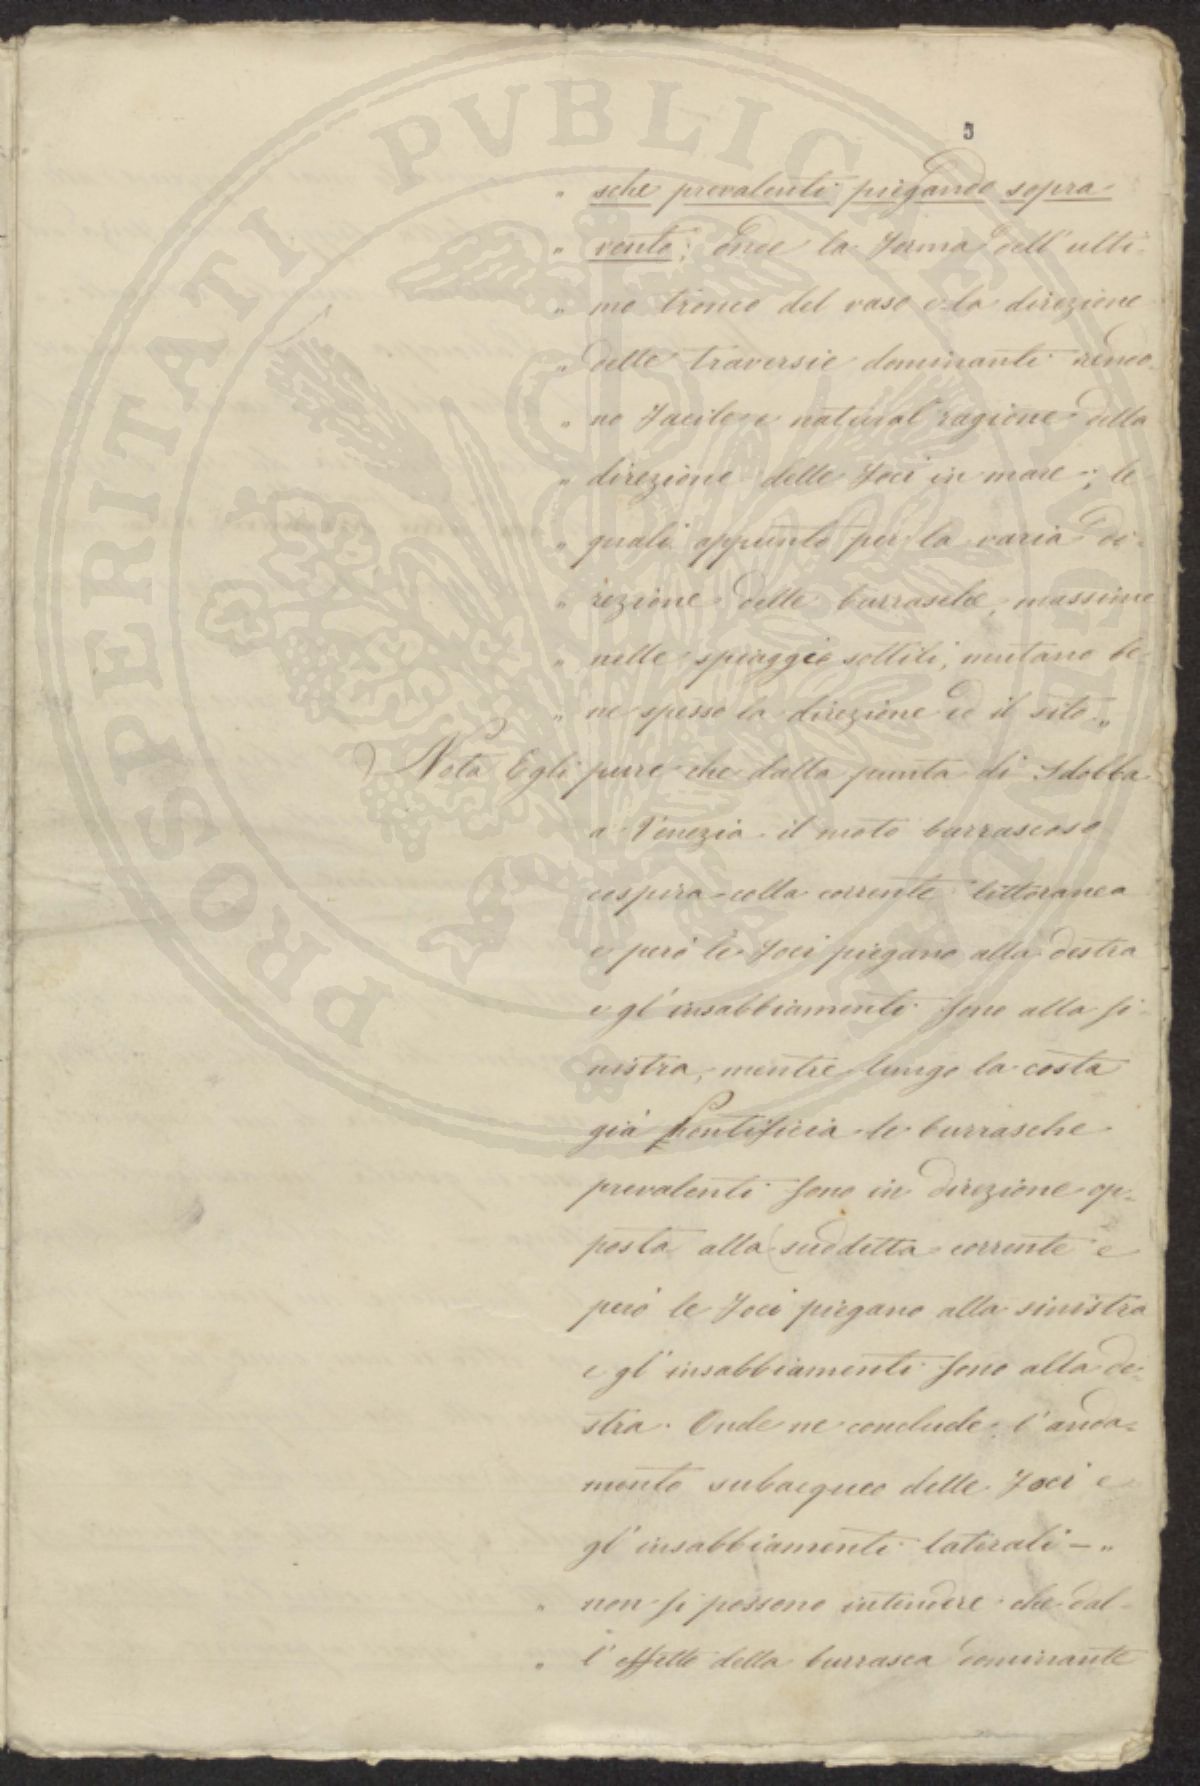 PROSPERITATI PVBLICAE AVGENDAE
5
„ sche prevalenti piegando sopra-
„ vento; onde la forma dell'ulti-
„ mo tronco del vaso e la direzione
„ delle traversie dominanti rendo-
„ no facile e natural ragione della
„ direzione delle foci in mare; le
„ quali appunto per la varia di-
„ rezione delle burrasche, massime
„ nelle spiaggie sottili, mutano be-
„ ne spesso la direzione ed il sito „
Nota Egli pure che dalla punta di Sdobba
a Venezia il moto burrascoso
cospira colla corrente littoranea
e però le foci piegano alla destra
e gl'insabbiamenti sono alla si-
nistra, mentre lungo la costa
già Pontificia le burrasche
prevalenti sono in direzione op-
posta alla suddetta corrente e
però le foci piegano alla sinistra
e gl'insabbiamenti sono alla de-
stra. Onde ne conclude: l'anda-
mento subacqueo delle foci e
gl'insabbiamenti laterali – „
„ non si possono intendere che dal-
„ l'effetto della burrasca dominante